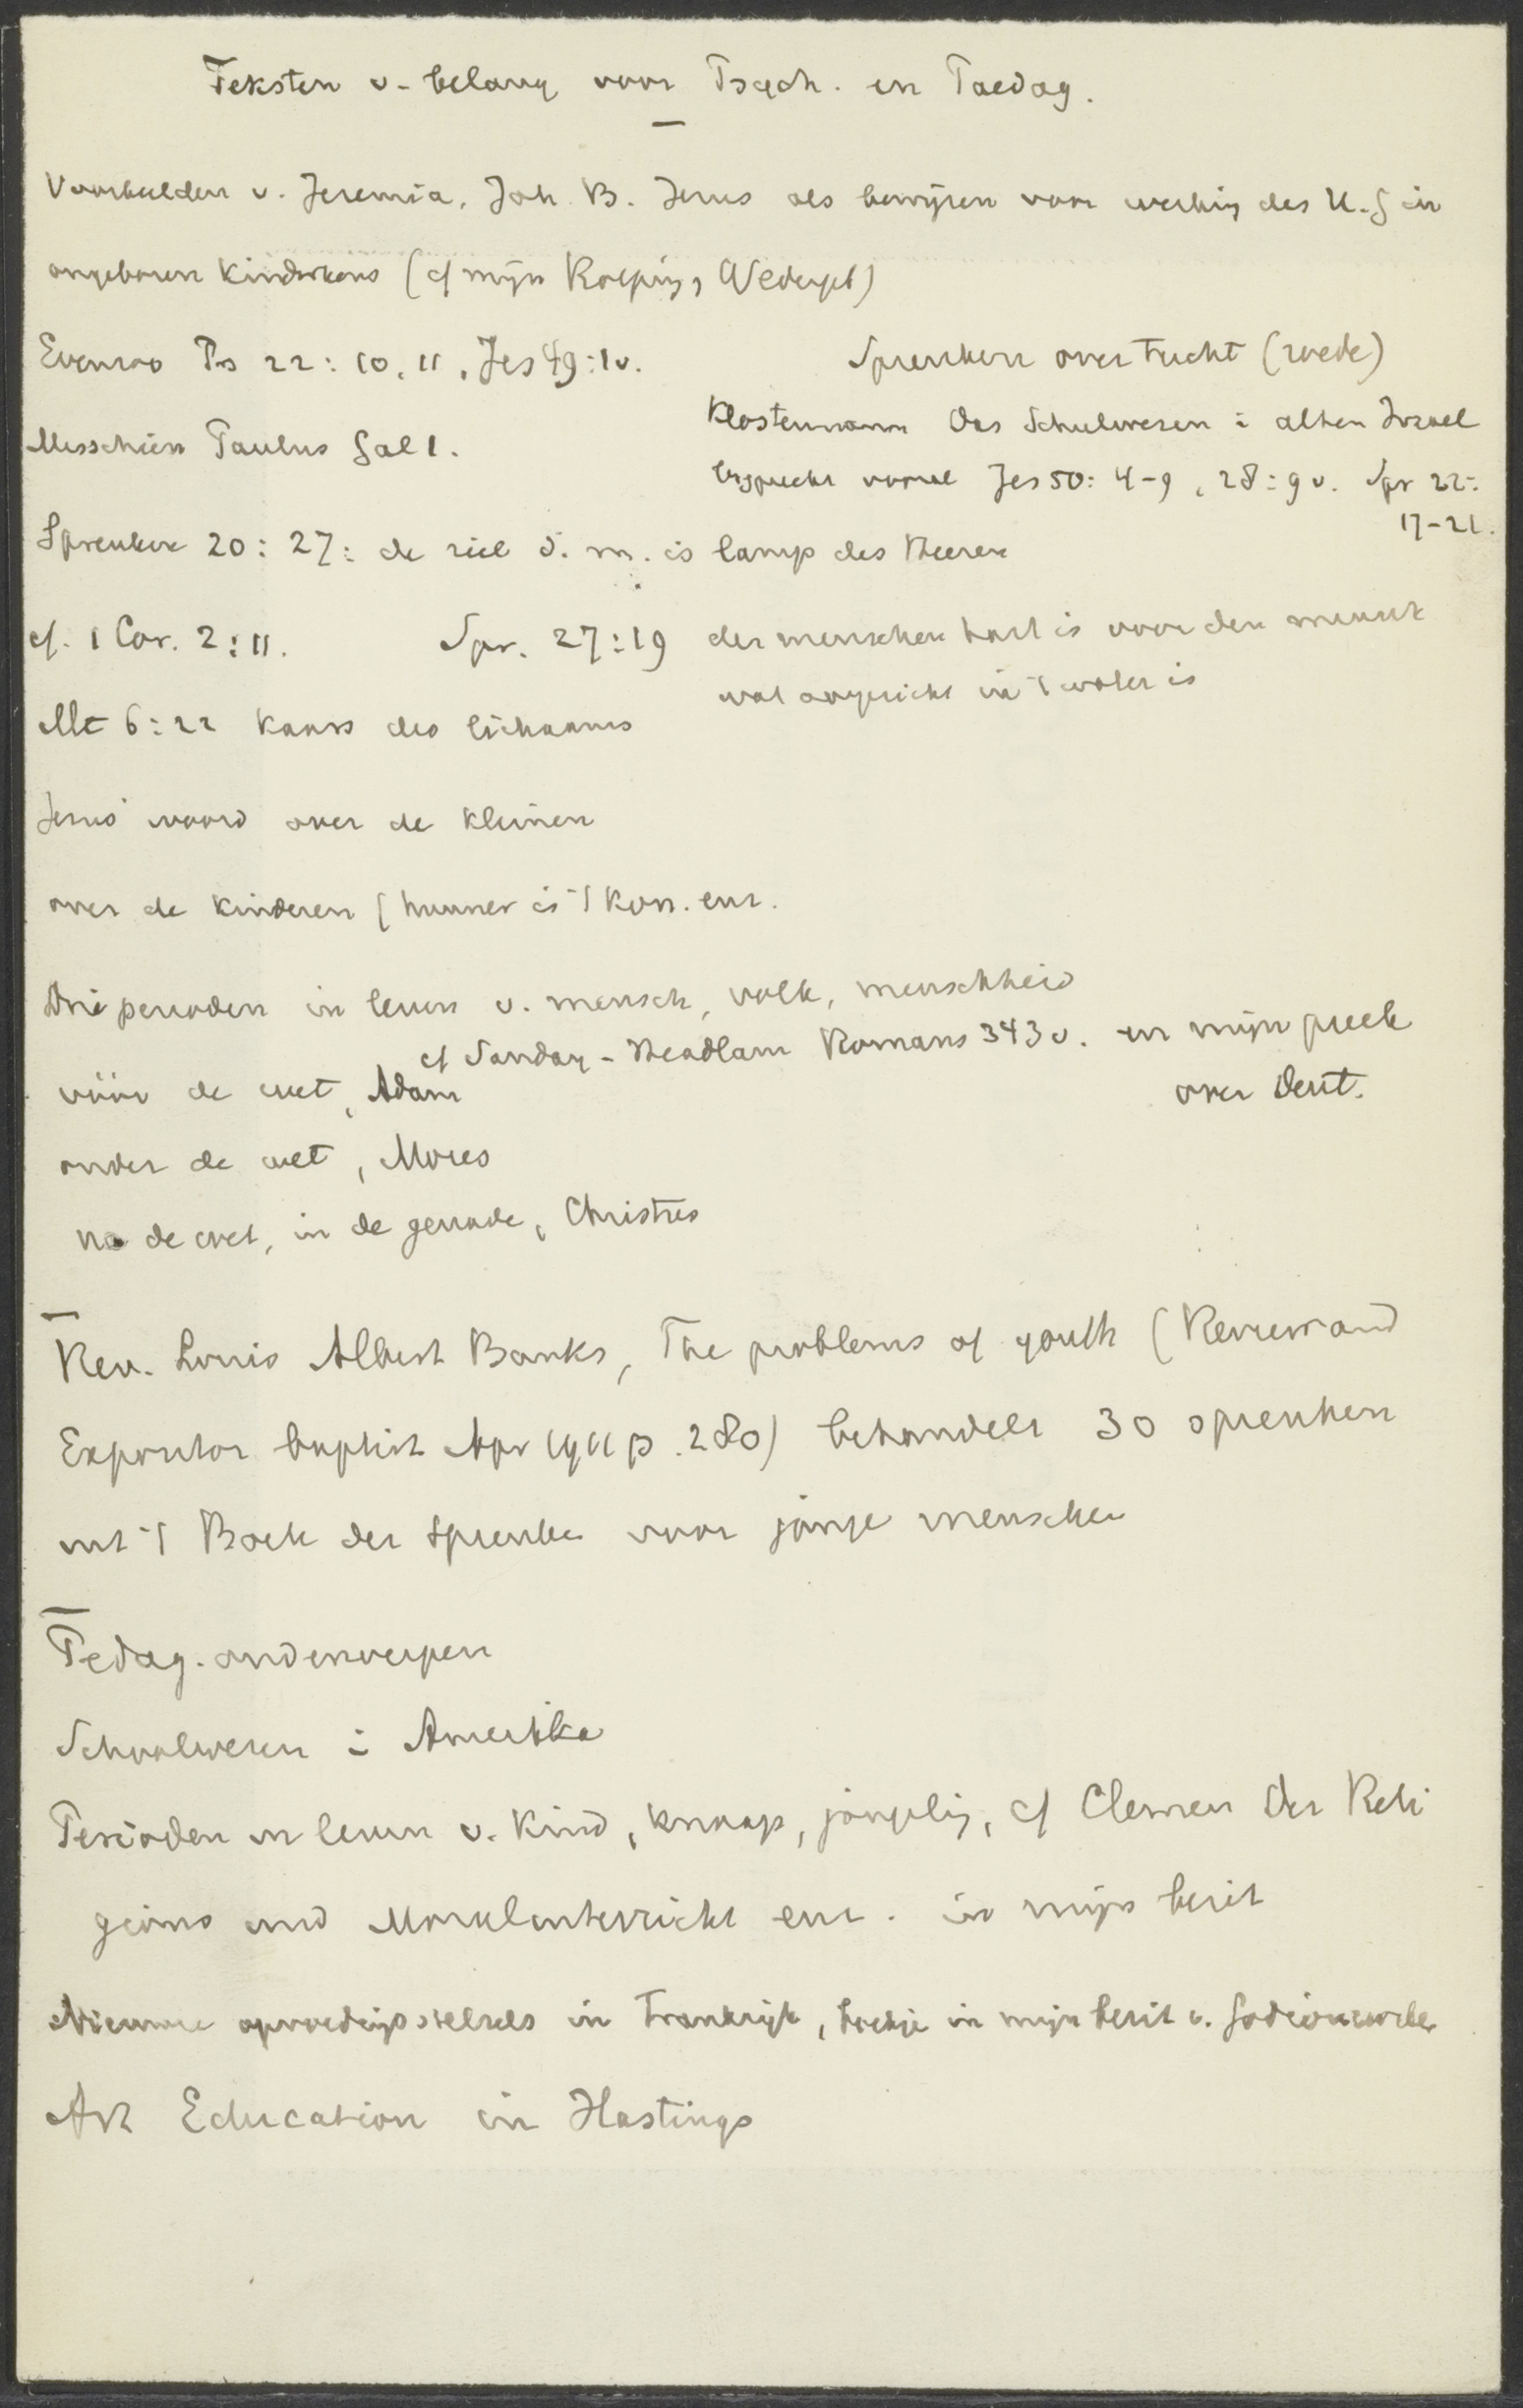 Teksten v. belang voor Psych. en Paedag.
Voorbeelden v. Jeremia, Joh. B. Jezus als bewijzen voor werking des H. G in
ongeboren kinderkens (cf mijn Roeping, Wedergeb)
Evenzoo Ps 22: 10, 11, Jes 49: 1v.
Spreuken over tucht (roede)
Misschien Paulus Gal 1.
Klostermann Das Schulwesen i alten Israel
bespreekt vooral Jes 50: 4-9, 28: 9 v. Spr 22:
17-21.
Spreuken 20: 27: de ziel d. m. is lamp des Heeren
cf. 1 Cor. 2: 11. Spr. 27: 19 des menschen hart is voor den mensch
wat aangezicht in 't water is
Mt 6: 22 kaars des lichaams
Jezus' woord over de kleinen
over de kinderen (hunner is 't Kon. enz.
Drie perioden in leven v. mensch, volk, menschheid
cf Sanday-Headlam Romans 343 v. en mijn preek
over Deut.
vóór de wet, Adam
onder de wet, Mozes
na de wet, in de genade, Christus
Rev. Louis Albert Banks, The problems of youth (Review and
Expositor baptist Apr 1911 p. 280) behandelt 30 spreuken
uit 't Boek der Spreuken voor jonge menschen
Pedag. onderwerpen
Schoolwezen i Amerika
Perioden in leven v. kind, knaap, jongeling, cf Clemen Der Reli
gions und Moralunterricht enz. in mijn bezit
Nieuwe opvoedingsstelsels in Frankrijk, boekje in mijn bezit v.
Art Education in Hastings